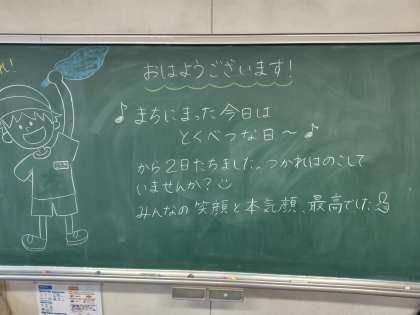 れ!
おはようございます!
♪まちにまった今日は
とくべつな日〜♪
から2日たちました。つかれはのこして
いませんか?
みんなの笑顔と本気顔、最高でした